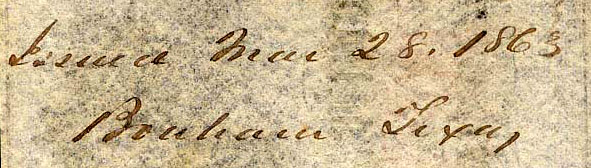 Issued Mar 28. 1863
Bonham Texas